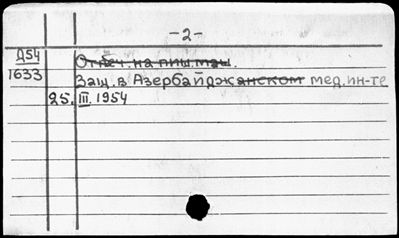 -2-
Д54
1633
Отпеч. на пиш. маш.
Защ. в Азербайджанском мед. ин-те
25. III. 1954